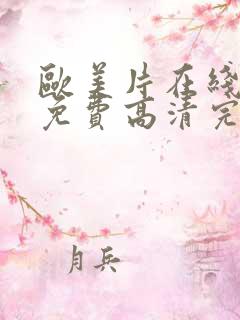 歐美片在綫
免費高清完
月兵